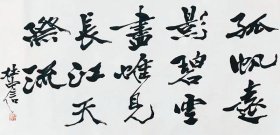 孤帆遠
影碧空
盡唯見
長江天
際流